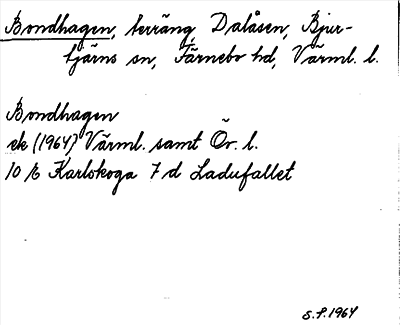 Bondhagen, terräng, Dalåsen, Bjur-
tjärns sn, Färnebo hd, Värml. l.
Bondhagen
ek (1964) Värml. samt Ör. l.
10 E Karlskoga 7 d Ladufallet
S.F. 1964